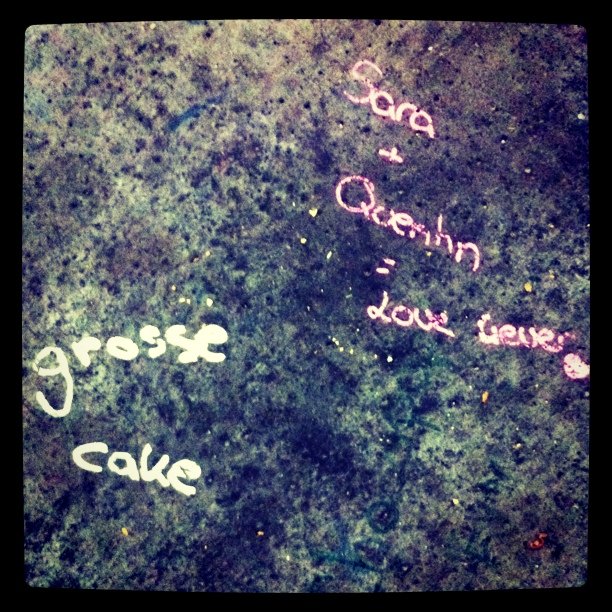 Sara
+
Quentin
=
Love
grosse
cake